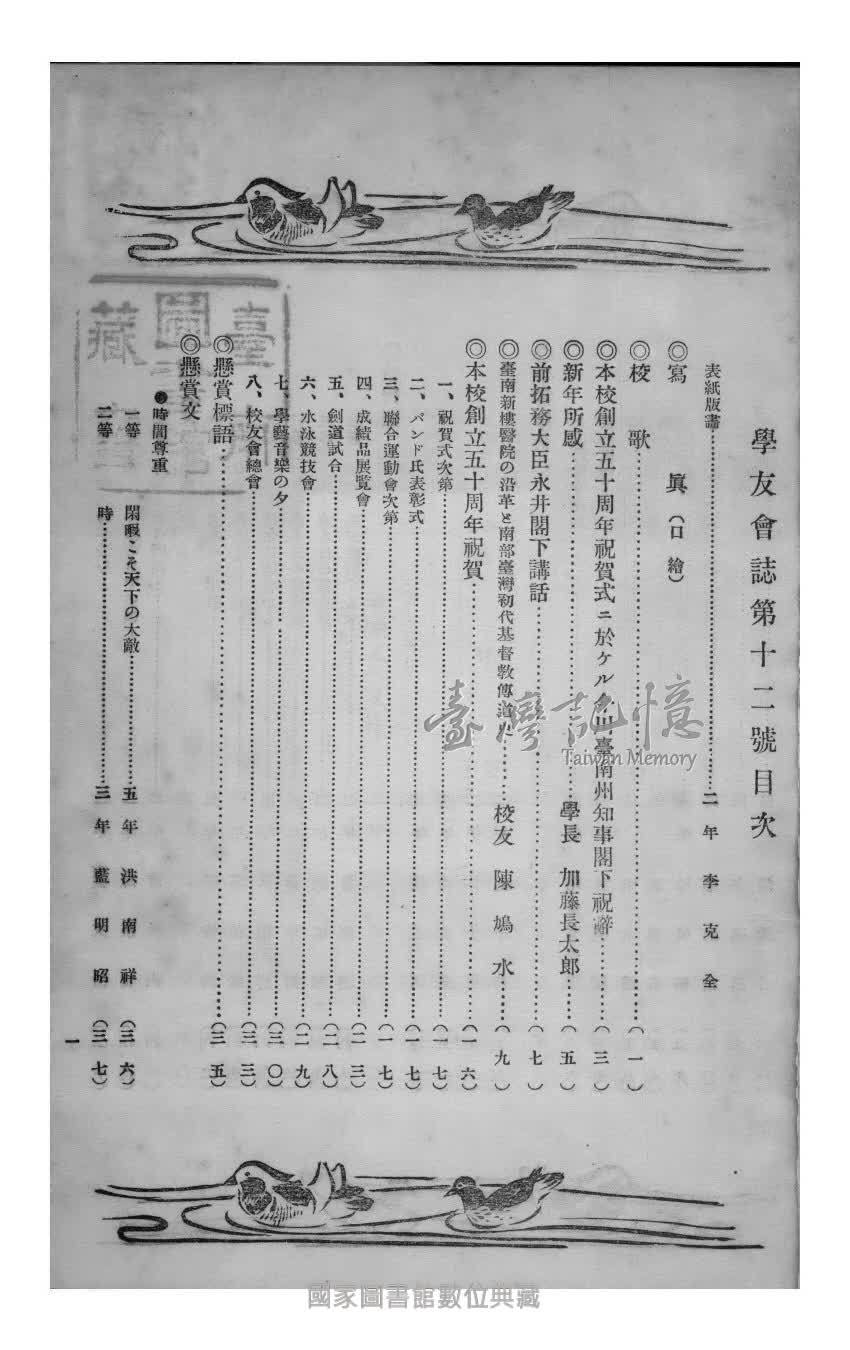 學友會誌第十二號目次
表紙版畫……二年 李克全
◎寫眞（口繪）
◎校歌……（一）
◎本校創立五十周年祝賀式ニ於ケル今川臺南州知事閣下祝辭……（三）
◎新年所感……學長 加藤長太郎……（五）
◎前拓務大臣永井閣下講話……（七）
◎臺南新樓醫院の沿革と南部臺灣初代基督敎傳道……校友 陳鳩水……（九）
◎本校創立五十周年祝賀……（一六）
一、祝賀式次第……（一七）
二、バンド氏表彰式……（一七）
三、聯合運動會次第……（一七）
四、成績品展覽會……（二三）
五、劍道試合……（二八）
六、水泳競技會……（二九）
七、學藝音樂の夕……（三〇）
八、校友會總會……（三三）
◎懸賞標語……（三五）
◎懸賞文
●時間尊重
一等 閑暇こそ天下の大敵……五年 洪南祥（三六）
二等 時……三年 藍明昭（三七）
一
臺灣記憶
Taiwan Memory
國家圖書館數位典藏